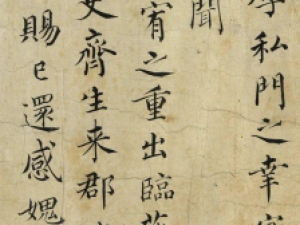 私門之幸
聞
宥之重出臨
齊生来郡
賜已還感媿